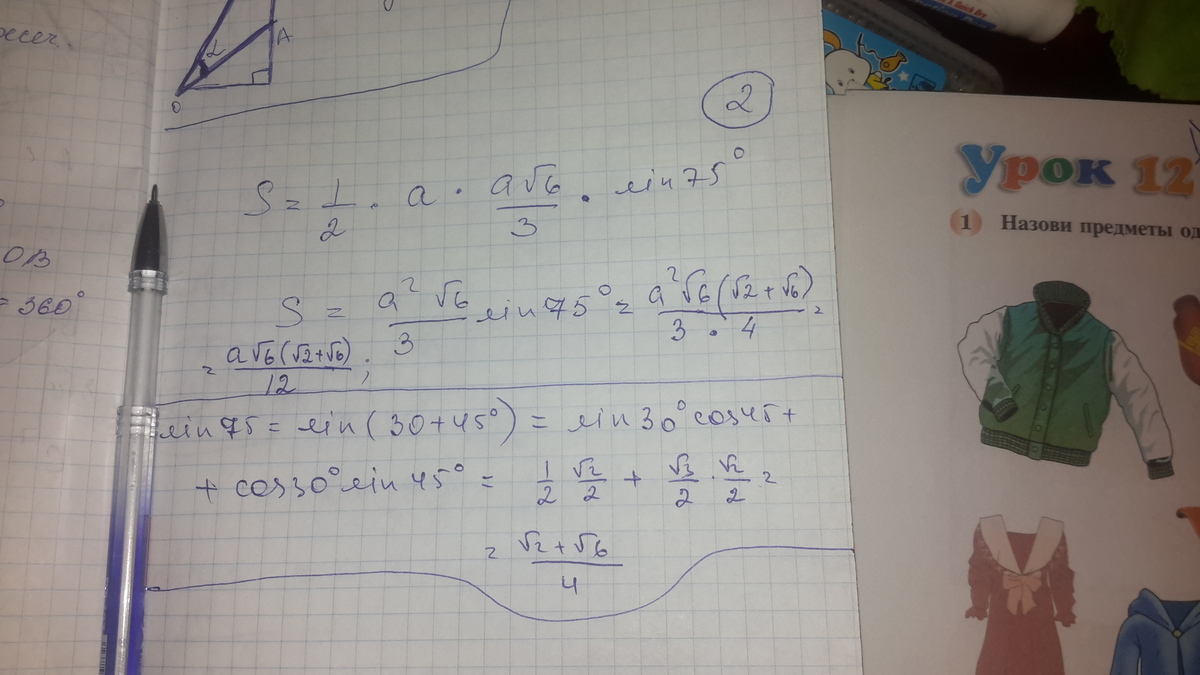 A
α
O
2
S = 1/2 · a · a√6/3 · sin 75°
OB
= 360°
S = a²√6/3 sin 75° = a²√6(√2+√6)/3·4 =
= a√6(√2+√6)/12 ;
sin 75 = sin(30+45°) = sin 30° cos 45 +
+ cos 30° sin 45° = 1/2 √2/2 + √3/2 · √2/2 =
= √2+√6/4
Урок 12
1 Назови предметы од